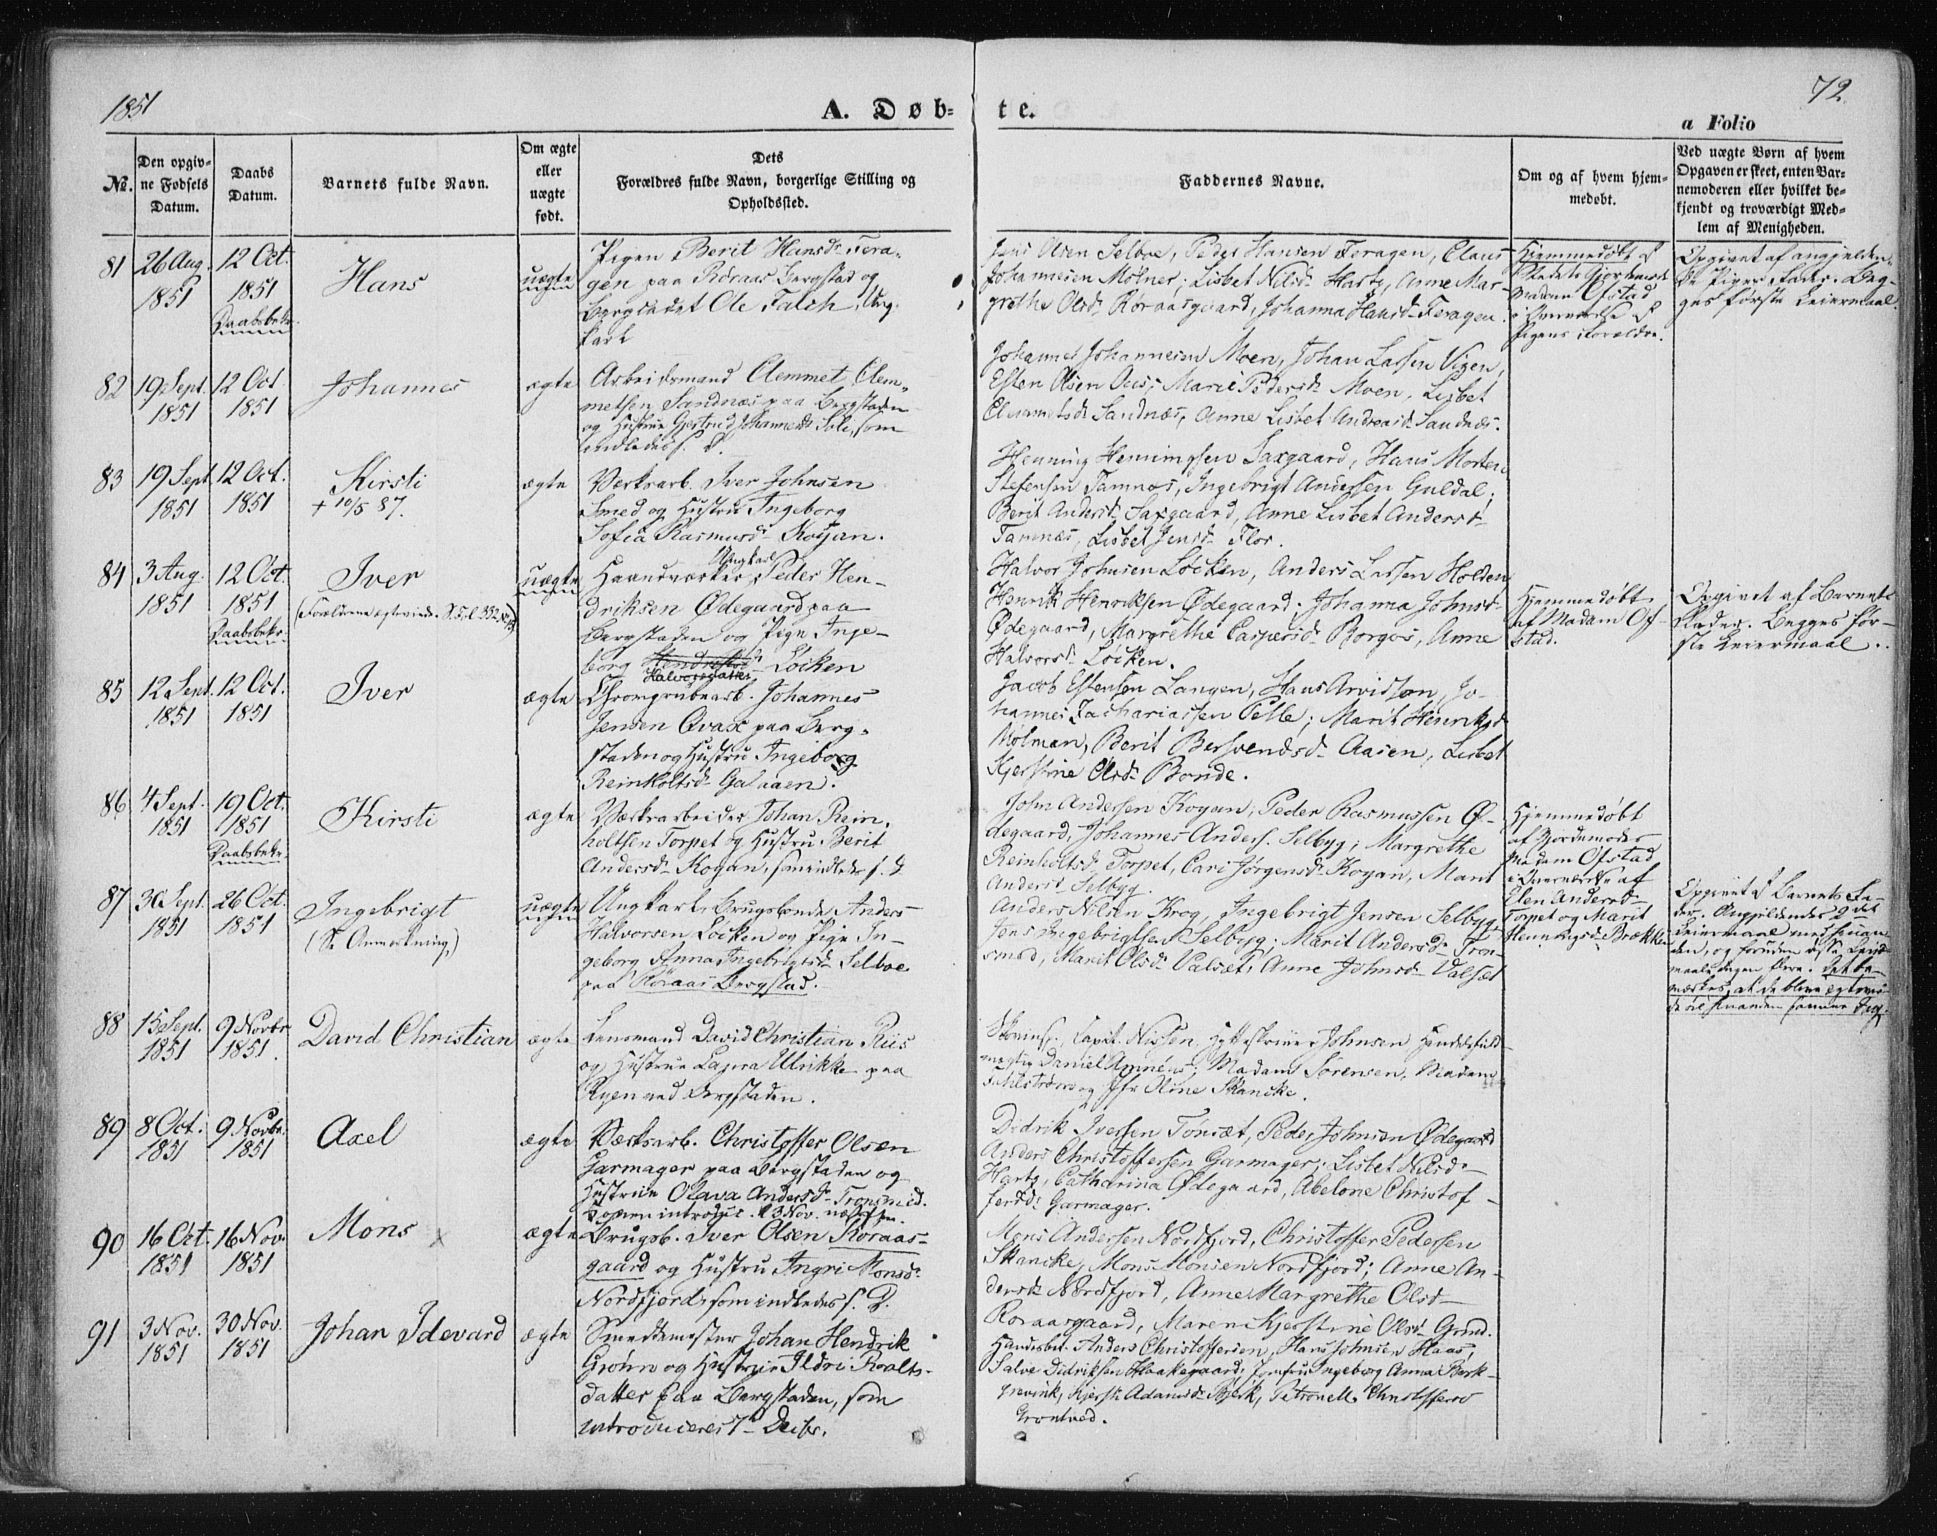 1851
A. Døb=
te.
72
a Folio
№.
Den opgiv-
ne Fødsels
Datum.
Daabs
Datum.
Barnets fulde Navn.
Om ægte
eller
uægte
født.
Dets
Forældres fulde Navn, borgerlige Stilling og
Opholdssted.
Faddernes Navne.
Om og af hvem hjem-
medøbt.
Ved uægte Børn af hvem
Opgaven er skeet, enten Bar-
nemoderen eller hvilket be-
kjendt og troværdigt Med-
lem af Menigheden.
81
26 Aug.
1851
12 Oct.
1851
Daabsbekr.
Hans
uægte
Pigen Berit Hansd. Fera-
gen paa Røraas Bergstad og
Bergkadet Ole Falch, Ung-
karl
Jens Olsen Selboe, Peder Hansen Feragen, Claus
Johannesen Mølner; Lisbet Nilsd. Hartz, Anne Mar-
grethe Olsd. Røraasgaard, Johanna Hansd. Feragen.
Hjemmedøbt af
Stedets Gjordemoder
Madam Ofstad
i Overværelse af
Pigens Forældre.
Opgivet af angjelden-
de Piges Fader. Beg-
ges første Leiermaal.
82
19 Sept.
1851
12 Oct.
1851
Johannes
ægte
Arbeidsmand Clemmet Clem-
metsen Sandnæs paa Bergstaden
og Hustrue Gjertrud Johannesd. Sole, som
indledes s. D.
Johannes Johannesen Moen, Johan Larsen Vigen,
Esten Olsen Aas; Marie Pedersd. Moen, Lisbet
Clemmetsd. Sandnæs, Anne Lisbet Andreasd. Sandnæs.
83
19 Sept.
1851
12 Oct.
1851
Kirsti
+ 10/5 87.
ægte
Værksarb. Iver Johnsen
Smed og Hustru Ingeborg
Sofia Rasmusd. Kojan.
Henning Henningsen Saxgaard, Hans Morten
Stefensen Tamnes, Ingebrigt Andersen Guldal;
Berit Andersd. Saxgaard, Anne Lisbet Andersd.
Tamnæs, Lisbet Jensd. Flor.
84
3 Aug.
1851
12 Oct.
1851
Daabsbekr.
Iver
uægte
Ungkarl
Haandværker Peder Hen-
driksen Ødegaard paa
Bergstaden og Pige Inge-
borg Hendriksd. Løcken
Halvorsdatter
Halvor Johnsen Løcken, Anders Larsen Holden
Henrik Henriksen Ødegaard; Johanna Johnsd.
Ødegaard, Margrethe Caspersd. Borgos, Anne
Halvorsd. Løcken.
Hjemmedøbt
af Madam Of-
stad.
Opgivet af Barnets
Fader. Begges før-
ste Leiermaal.
85
12 Sept.
1851
12 Oct.
1851
Iver
ægte
Chromgrubearb. Johannes
Jensen Qvale paa Berg-
staden og Hustru Ingeborg
Reinholtsd. Galaaen.
Jacob Estensen Langen, Hans Arvidson, Jo-
hannes Zachariassen Pelle; Marit Henriksd.
Molman, Berit Bersvendsd. Aasen, Lisbet
Kjerstine Olsd. Bonde.
86
4 Sept.
1851
19 Oct.
1851
Daabsbekr.
Kirsti
ægte
Værksarbeider Johan Rein-
holtsen Torpet og Hustru Berit
Andersd. Kojan, som indledes s. D.
John Andersen Kojan, Peder Rasmussen Ø-
degaard, Johannes Anders. Selbyg; Margrethe
Reinholtsd. Torpet, Cari Jørgensd. Kojan, Marit
Andersd. Selbyg.
Hjemmedøbt
af Gjordemoder
Madam Ofstad
i Overværelse af
Elen Andersd.
Torpet og Marit
Henningsd. Brækken
87
30 Sept.
1851
26 Oct.
1851
Ingebrigt
(S. Anmærkning)
uægte
Ungkarl, Brugsbonde Anders
Halvorsen Løcken og Pige In-
geborg Anna Ingebrigtsd. Selboe
paa Røraas Bergstad.
Anders Nilsen Krog, Ingebrigt Jensen Selbyg,
Jens Ingebrigtsen Selbyg; Marit Andersd. Tron-
smed, Marit Olsd. Valset, Anne Johnsd. Valset
Opgivet af Barnets Fa-
der. Angjeldendes 2det
Leiermaal med hinan-
den, og foruden disse Leier-
maale ingen flere. Det be-
mærkes, at de bleve ægtevi-
88
15 Sept.
1851
9 Novbr.
1851.
David Christian
ægte
Lensmand David Christian Riis
og Hustrue Laura Ulrikke paa
Ryen ved Bergstaden.
Capit. Nissen, Hytteskriver Johnsen, Handelsfuld-
mægtig Daniel Amnéus; Madam Sørensen, Madam
Fahlstrøm og Jfr. Oline Skancke.
89
8 Oct.
1851
9 Novbr.
1851
Axel
ægte
Værksarb. Christoffer Olsen
Garmager paa Bergstaden og
Hustrue Olava Andersd. Tronsmed.
Konen introduc. 23 Nov. næstefter.
Didrik Iversen Tonset, Peder Johnsen Ødegaard
Anders Christoffersen Garmager; Lisbet Nilsd.
Hartz, Catharina Ødegaard, Abelone Christof-
fersd. Garmager.
90
16 Oct.
1851
16 Nov.
1851
Mons
ægte
Brugsb. Iver Olsen Røraas-
gaard og Hustru Ingri Monsd.
Nordfjord, som indledes s. D.
Mons Andersen Nordfjord, Christoffer Pedersen
Skancke, Mons Monsen Nordfjord; Anne An-
dersd. Nordfjord, Anne Margrethe Olsd.
Røraasgaard, Maren Kjerstine Olsd. Grind.
91
3 Nov.
1851
30 Nov.
1851
Johan Idevard
ægte
Smeddemester Johan Hendrik
Grönn og Hustrue Ildri Roalts-
datter paa Bergstaden, som
introduceres 7de Decbr.
Handelsbet. Anders Christoffersen, Hans Johnsen Haas,
Salve Didriksen Haakegaard; Jomfru Ingeborg Anna Bork-
grevink, Kjersti Adamsd. Bjerk, Petronelle Christoffersd.
Grøntved.